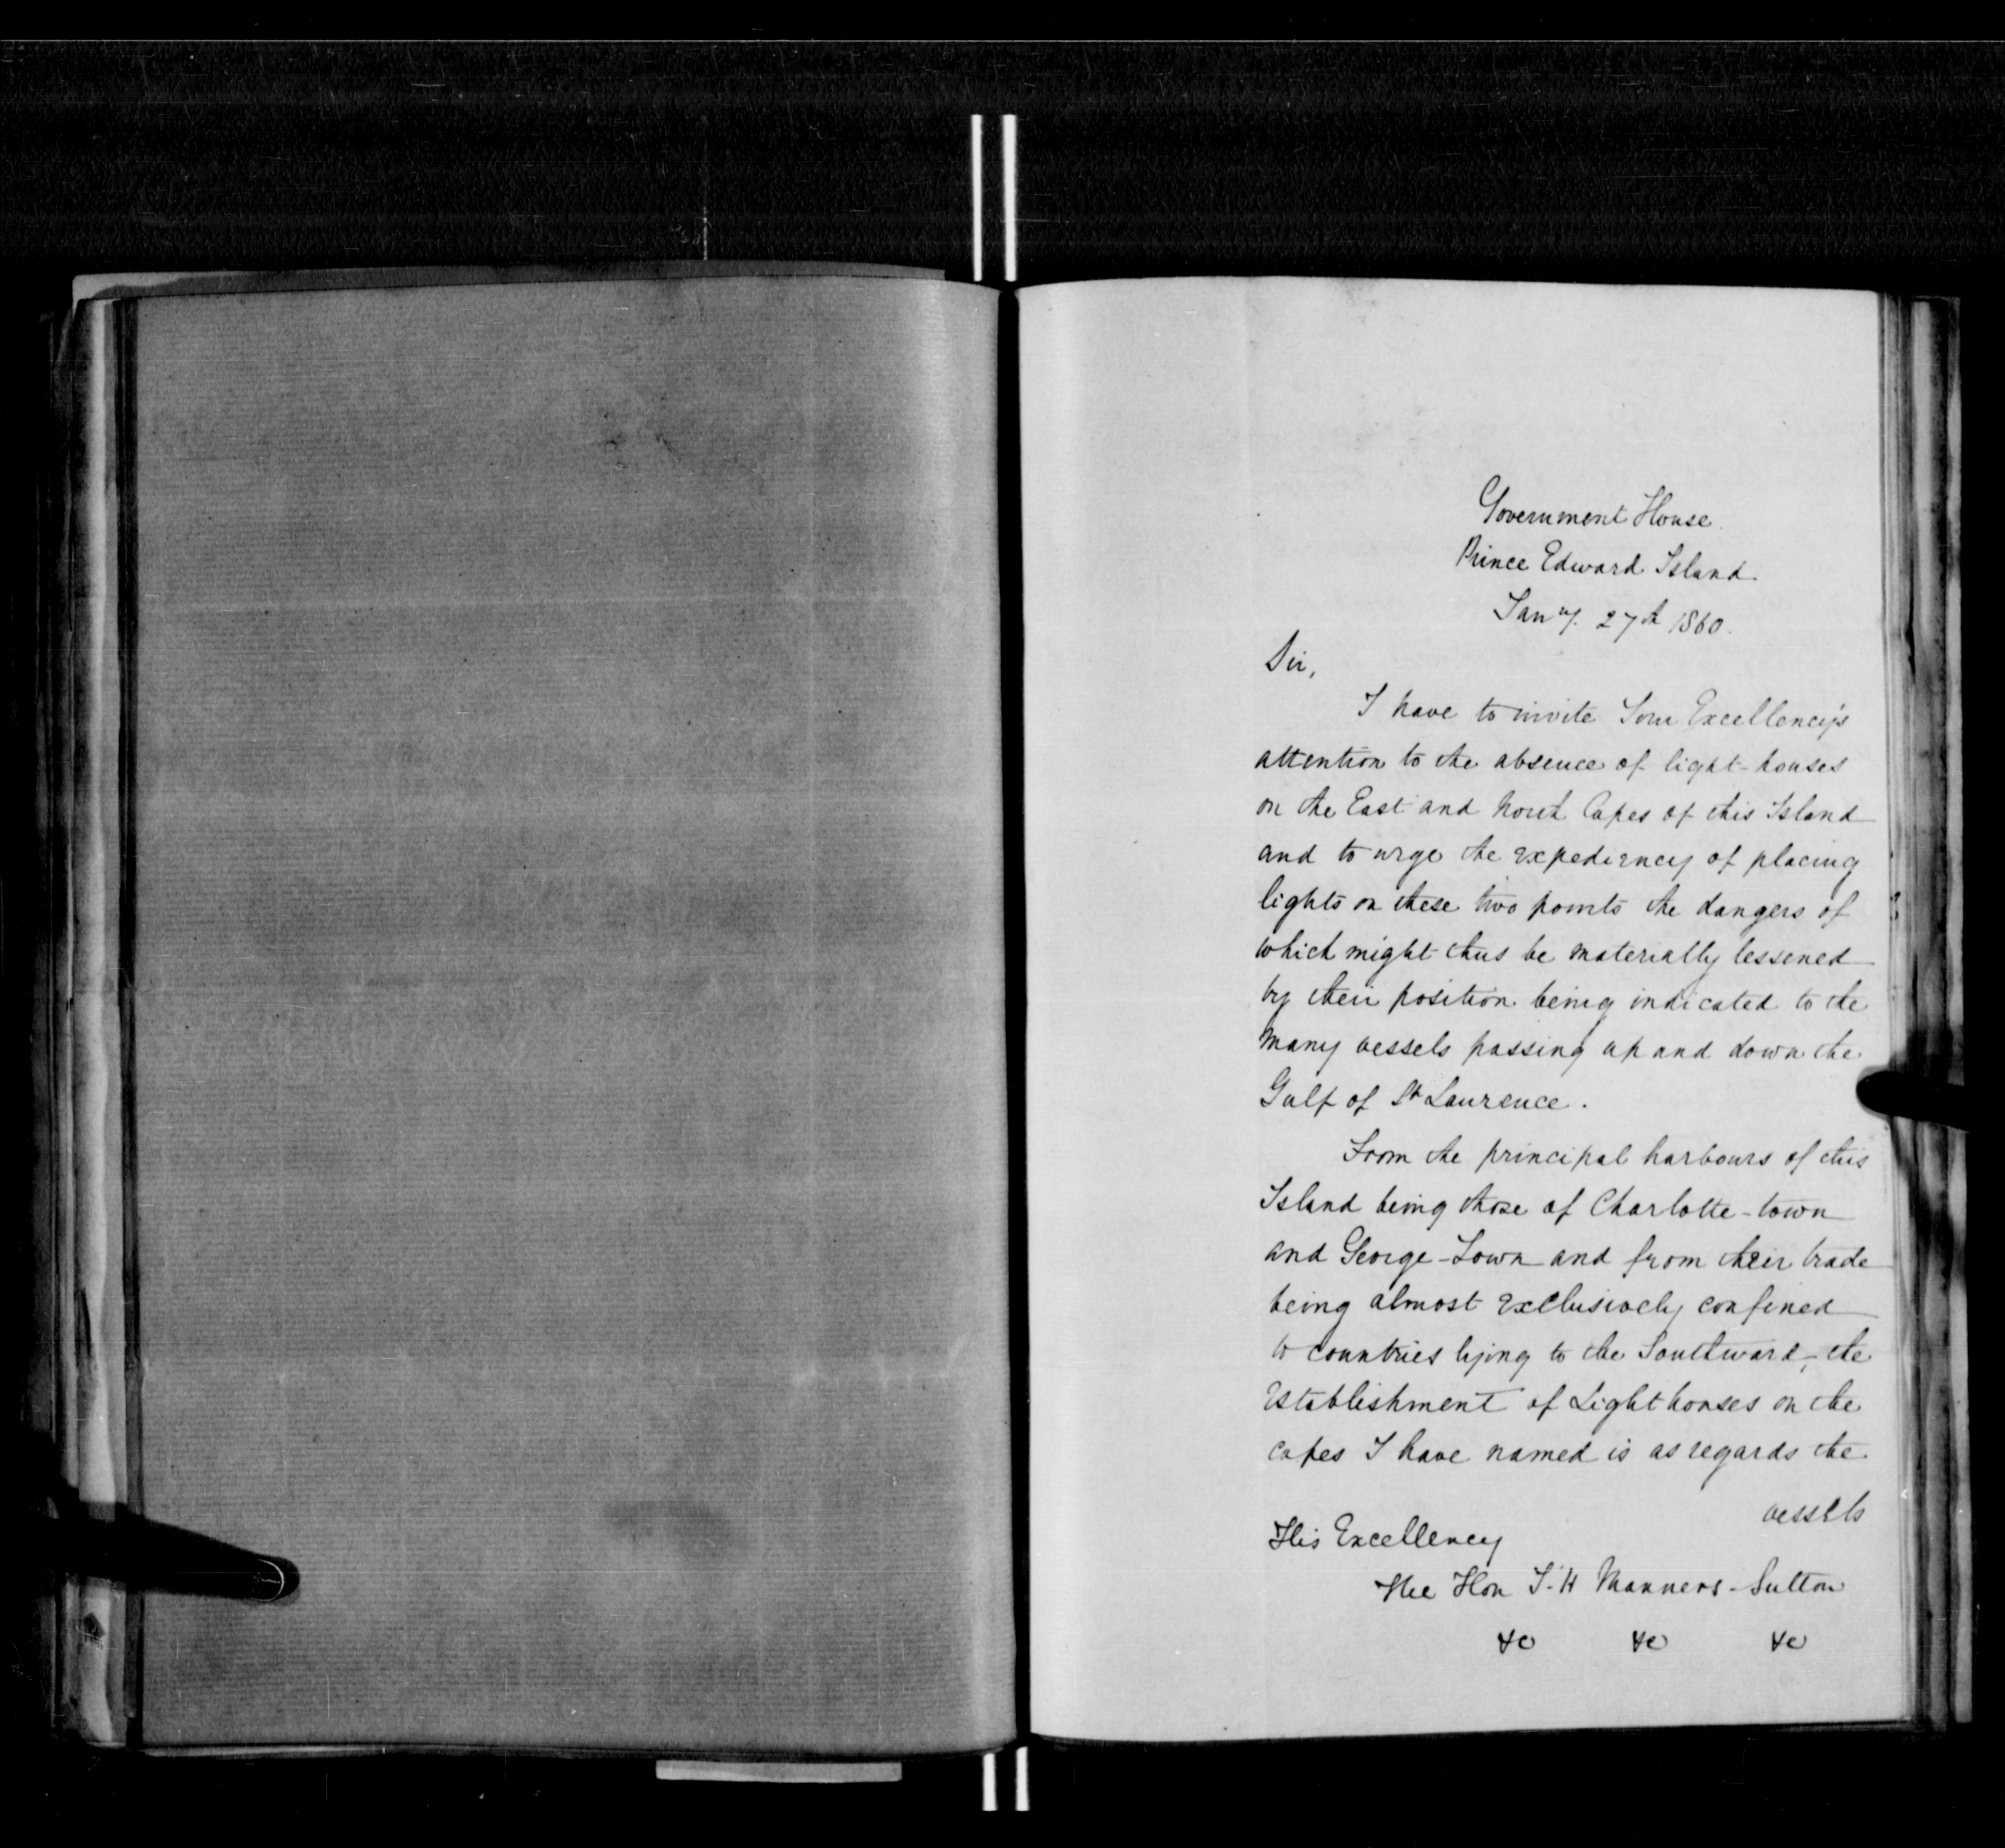 Government House.
Prince Edward Island.
Jany. 27th 1860.
Sir,
I have to invite Your Excellency's
attention to the absence of light-houses
on the East and North Capes of this Island
and to urge the expediency of placing
lights on these two points the dangers of
which might thus be materially lessened
by their position being indicated to the
many vessels passing up and down the
Gulf of St Laurence.
From the principal harbours of this
Island being those of Charlotte-town
and George-Town and from their trade
being almost exclusively confined
to countries lying to the Southward, the
establishment of Light houses on the
capes I have named is as regards the
vessels
His Excellency
The Hon J. H Manners-Sutton
&c &c &c